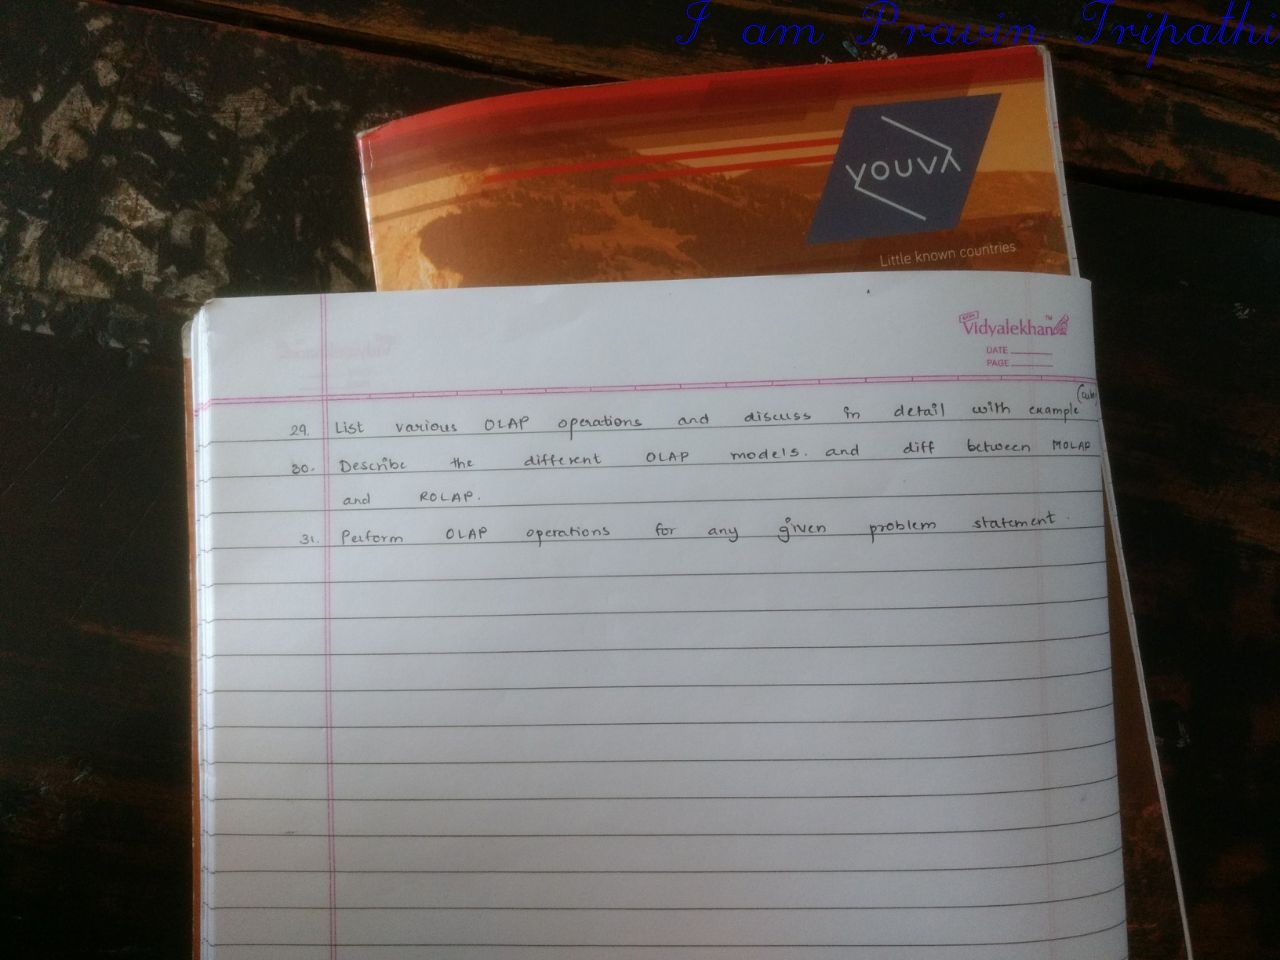 I am Pravin Tripathi
YOUVA
Little known countries
Vidyalekhan™
DATE
PAGE
29. List various OLAP operations and discuss in detail with example
30. Describe the different OLAP models. and diff between MOLAP
and ROLAP.
31. Perform OLAP operations for any given problem statement.